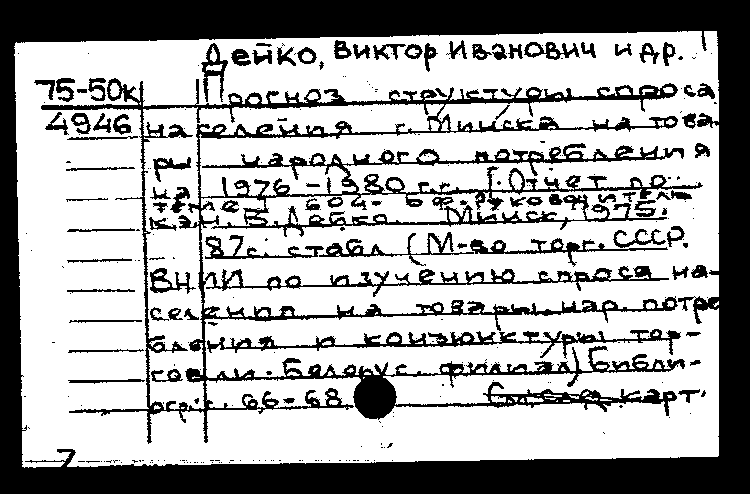 Дейко, Виктор Иванович и др.
75-50к Прогноз структуры спроса
4946 населения г. Минска на това-
ры народного потребления
на 1976-1980 г.г. [Отчет по
теме] 604- бф. Руководитель
В. Дейко. Минск, 1975.
87с. с табл (М-во торг. СССР.
ВНИИ по изучению спроса на-
селения на товары нар. потре
бления и конъюнктуры тор-
говли. Белорус. филиал) Библи-
огр: с. 66-68 См. след карт.
7